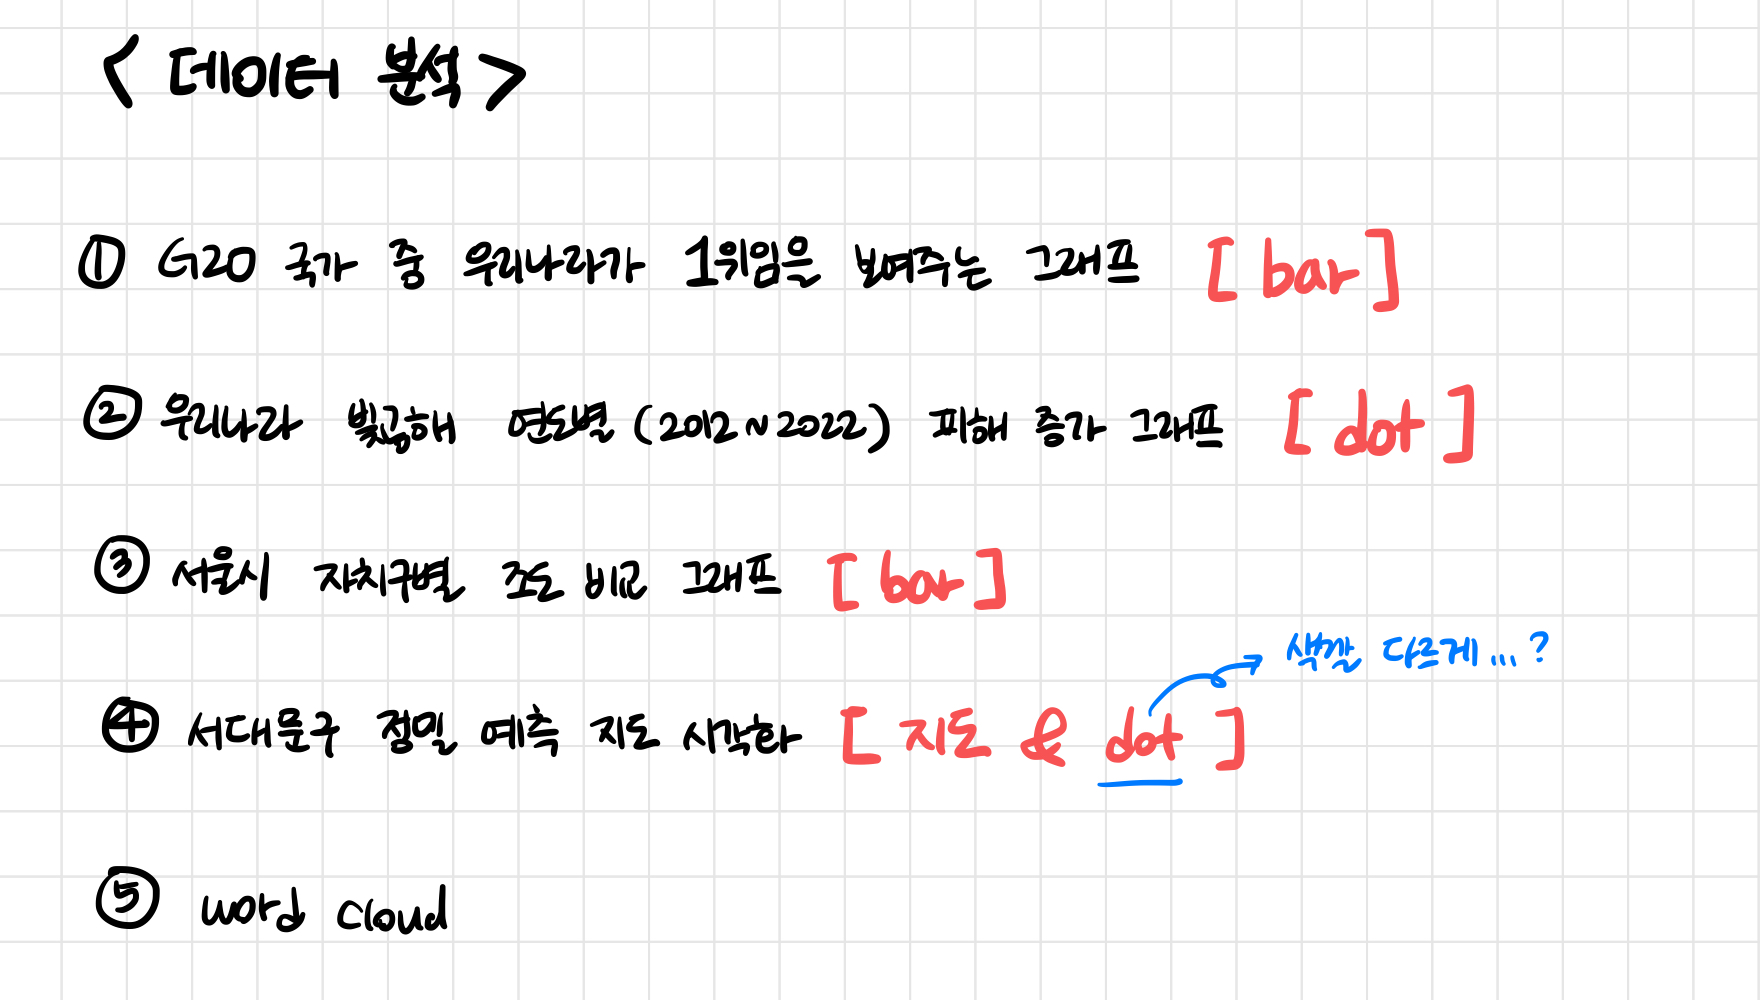 < 데이터 분석 >
① G20 국가 중 우리나라가 1위임을 보여주는 그래프 [ bar ]
② 우리나라 빛공해 연도별 (2012 ~ 2022) 피해 증가 그래프 [ dot ]
③ 서울시 자치구별 조도 비교 그래프 [ bar ]
색깔 다르게 ... ?
④ 서대문구 정밀 예측 지도 시각화 [ 지도 & dot ]
⑤ word cloud